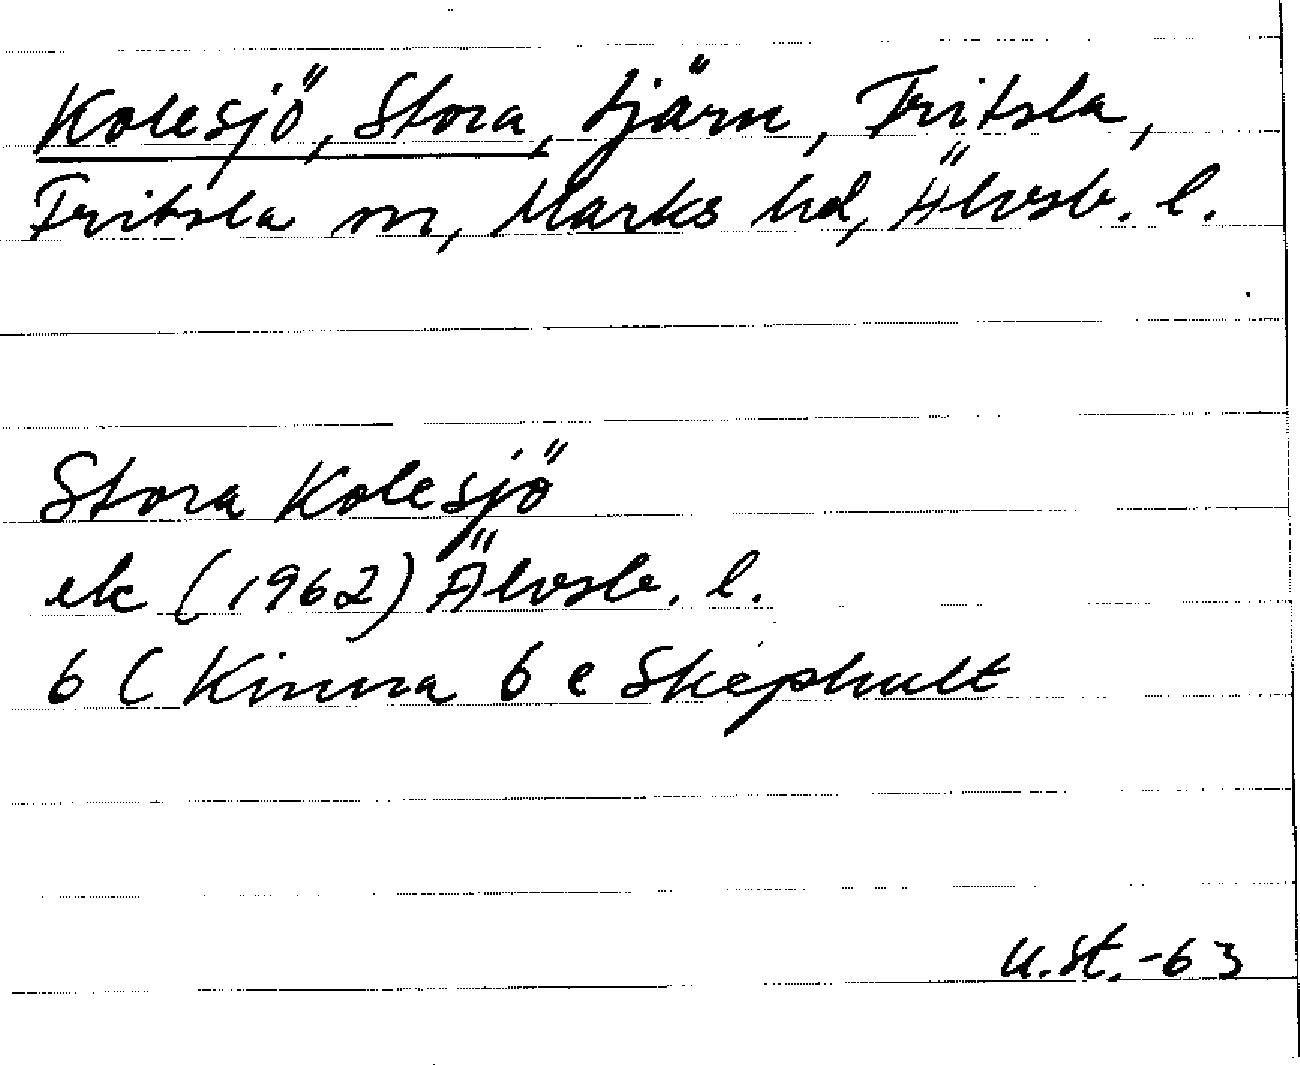 Kolesjö, Stora, tjärn, Fritsla,
Fritsla sn, Marks hd, Älvsb. l.
Stora Kolesjö
ek (1962) Älvsb. l.
6 C Kinna 6 e Skephult
U.St. -63